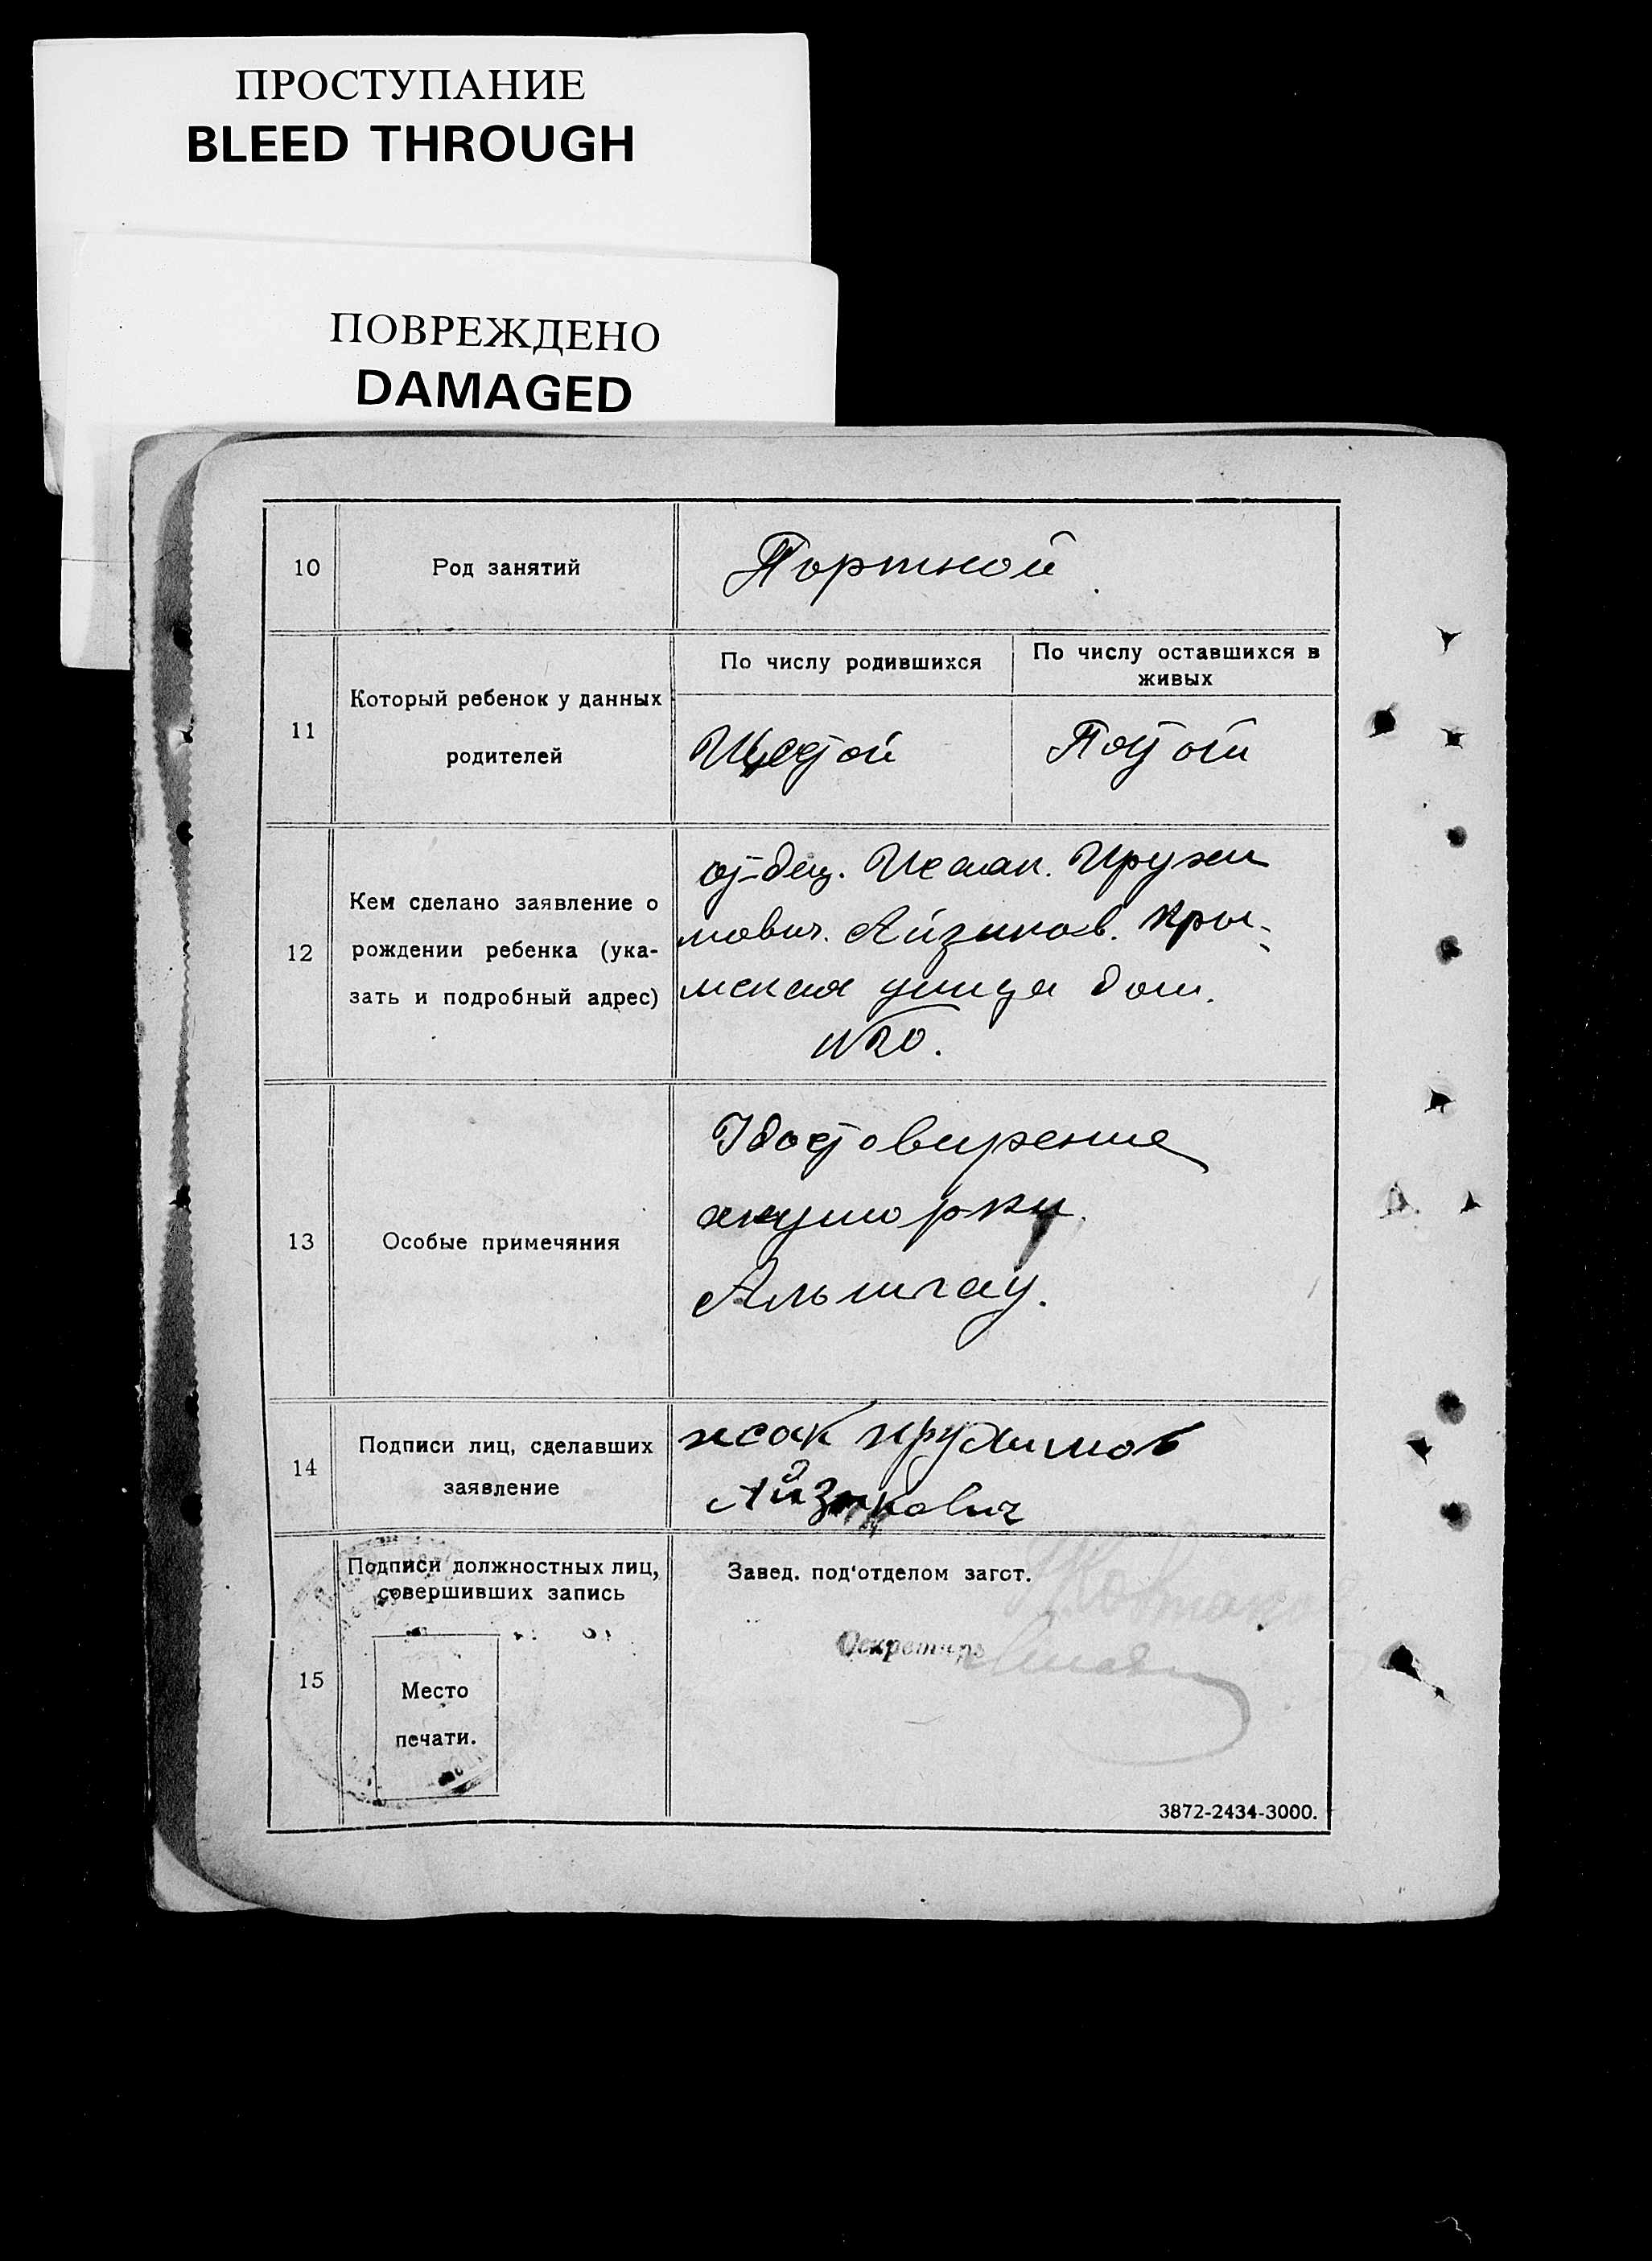 ПРОСТУПАНИЕ
BLEED THROUGH
ПОВРЕЖДЕНО
DAMAGED
10
Род занятий
Портной
11
Который ребенок у данных
родителей
По числу родившихся
По числу оставшихся в
живых
Шестой
12
Кем сделано заявление о
рождении ребенка (ука-
зать и подробный адрес)
Исаак.
мович. Айзиков. Кры-
мская улица дом.
№20.
13
Особые примечяния
Удостовирение
акушорки
Альтгау.
14
Подписи лиц, сделавших
заявление
исак
Айзикович
15
Подписи должностных лиц,
совершивших запись
Место
печати.
Завед. под'отделом загст.
Секретарь
3872-2434-3000.